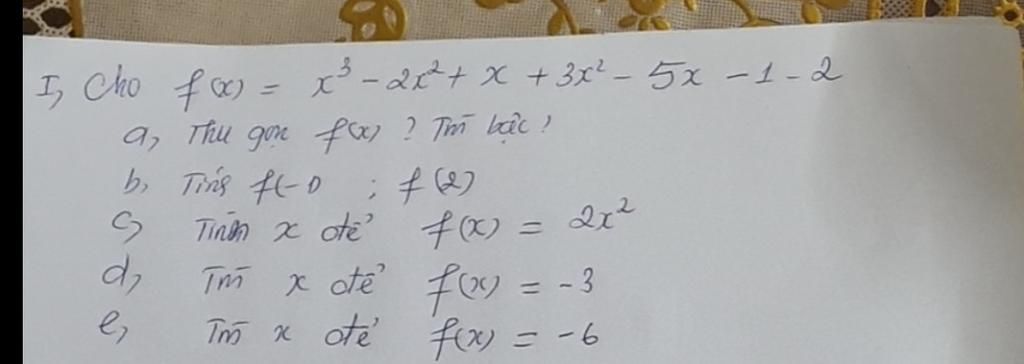 I, Cho f(x) = x³ - 2x² + x + 3x² - 5x - 1 - 2
a, Thu gọn f(x) ? Tìm bậc ?
b, Tính f(-1) ; f(2)
c, Tìm x để f(x) = 2x²
d, Tìm x để f(x) = -3
e, Tìm x để f(x) = -6